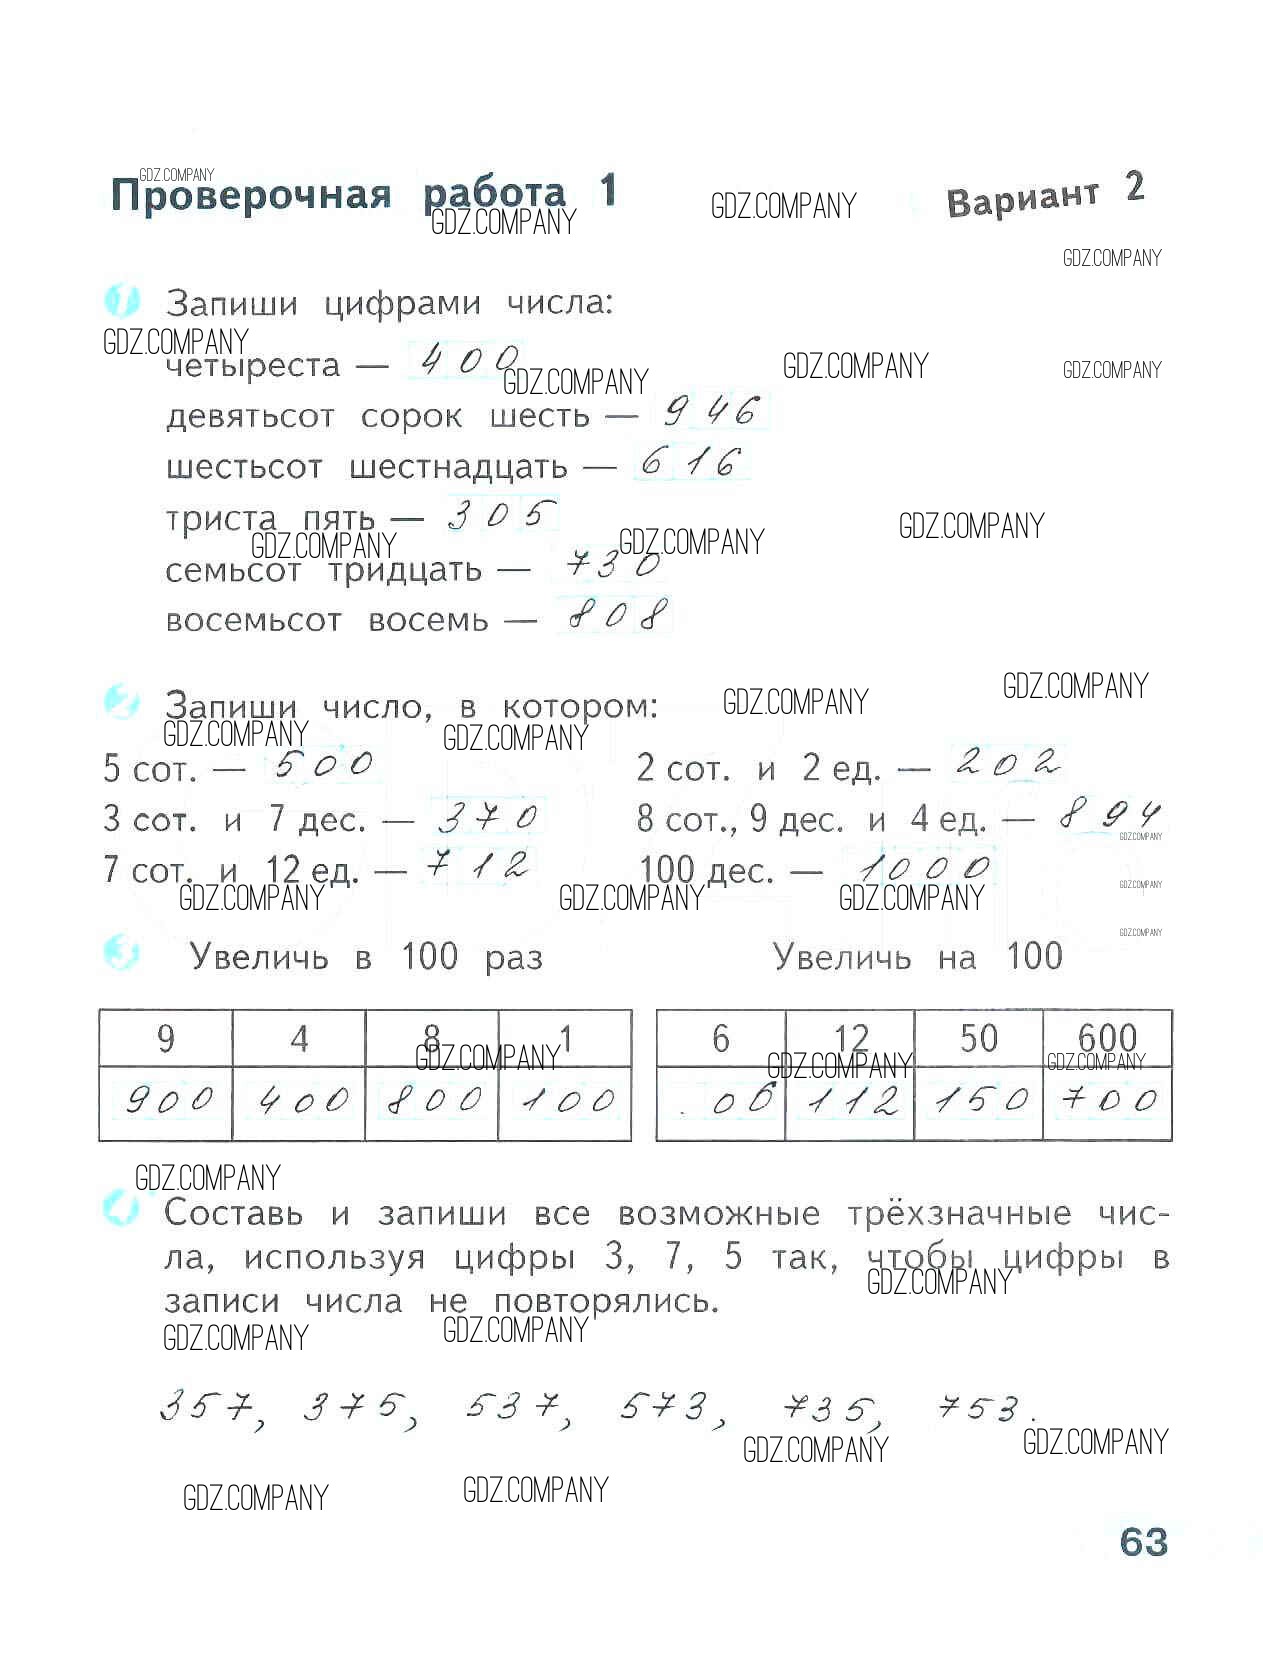 GDZ.COMPANY
Проверочная работа 1 Вариант 2
GDZ.COMPANY GDZ.COMPANY
GDZ.COMPANY
1 Запиши цифрами числа:
GDZ.COMPANY
четыреста — 400
GDZ.COMPANY GDZ.COMPANY GDZ.COMPANY
девятьсот сорок шесть — 946
шестьсот шестнадцать — 616
триста пять — 305
GDZ.COMPANY GDZ.COMPANY GDZ.COMPANY
семьсот тридцать — 730
восемьсот восемь — 808
2 Запиши число, в котором:
GDZ.COMPANY GDZ.COMPANY GDZ.COMPANY GDZ.COMPANY
5 сот. — 500 2 сот. и 2 ед. — 202
3 сот. и 7 дес. — 370 8 сот., 9 дес. и 4 ед. — 894
GDZ.COMPANY
7 сот. и 12 ед. — 712 100 дес. — 1000
GDZ.COMPANY GDZ.COMPANY GDZ.COMPANY GDZ.COMPANY
GDZ.COMPANY
3 Увеличь в 100 раз Увеличь на 100
9 4 8 1 6 12 50 600
GDZ.COMPANY GDZ.COMPANY GDZ.COMPANY
900 400 800 100 .06 112 150 700
GDZ.COMPANY
4 Составь и запиши все возможные трёхзначные чис-
ла, используя цифры 3, 7, 5 так, чтобы цифры в
GDZ.COMPANY
записи числа не повторялись.
GDZ.COMPANY GDZ.COMPANY
357, 375, 537, 573, 735, 753.
GDZ.COMPANY GDZ.COMPANY
GDZ.COMPANY GDZ.COMPANY
63